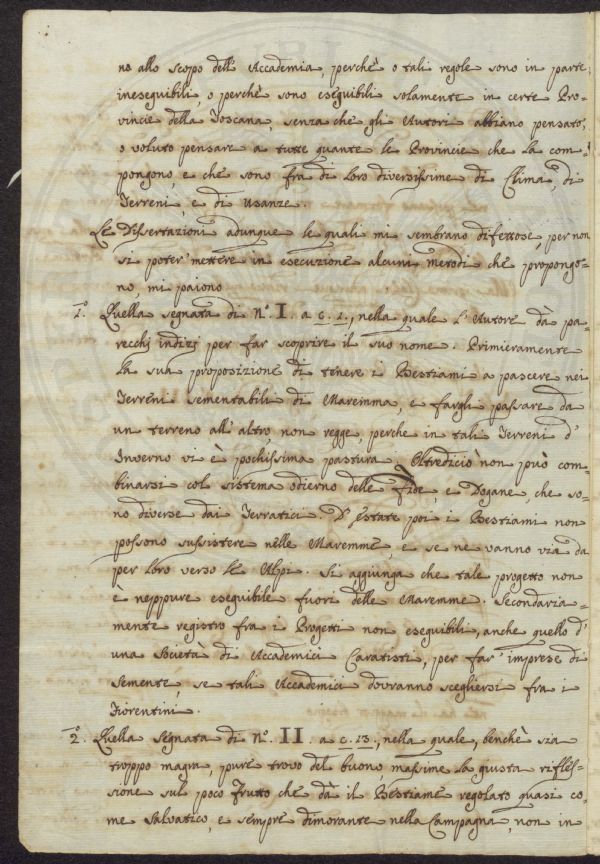 no allo scopo dell' Accademia, perchè o tali regole sono in parte
ineseguibili, o perchè sono eseguibili solamente in certe Pro=
vincie della Toscana, senza che gli Autori abbiano pensato,
o voluto pensare a tutte quante le Provincie che la com=
pongono, e che sono fra di loro diversissime di Clima, di
Terreni, e di Usanze.
Le Dissertazioni adunque le quali mi sembrano difettose, per non
si poter mettere in esecuzione alcuni metodi che propongo=
no, mi paiono
1.º Quella segnata di Nº. I. a c. 1., nella quale l'Autore dà pa=
recchi indizj per far scoprire il suo nome. Primieramente
la sua proposizione di tenere i Bestiami a pascere nei
Terreni sementabili di Maremma, e fargli passare da
un terreno all' altro, non regge, perche in tali Terreni d'
Inverno vi è pochissima pastura. Oltredicio non può com=
binarsi col sistema odierno delle Fide, e Dogane, che so=
no diverse dai Terratici. D' estate poi i Bestiami non
possono sussistere nelle Maremme, e se ne vanno via da
per loro verso le Alpi. Si aggiunga che tale progetto non
è neppure eseguibile fuori delle Maremme. Secondaria=
mente registro fra i Progetti non eseguibili, anche quello d'
una Società di Accademici Caratisti, per far' imprese di
Semente, se tali Accademici dovranno scegliersi fra i
Fiorentini.
2.º Quella Segnata di Nº. II. a c. 13., nella quale, benchè sia
troppo magra, pure trovo del buono, massime la giusta rifles=
sione sul poco frutto che dà il Bestiame regolato quasi co=
me salvatico, e sempre dimorante nella Campagna, non in